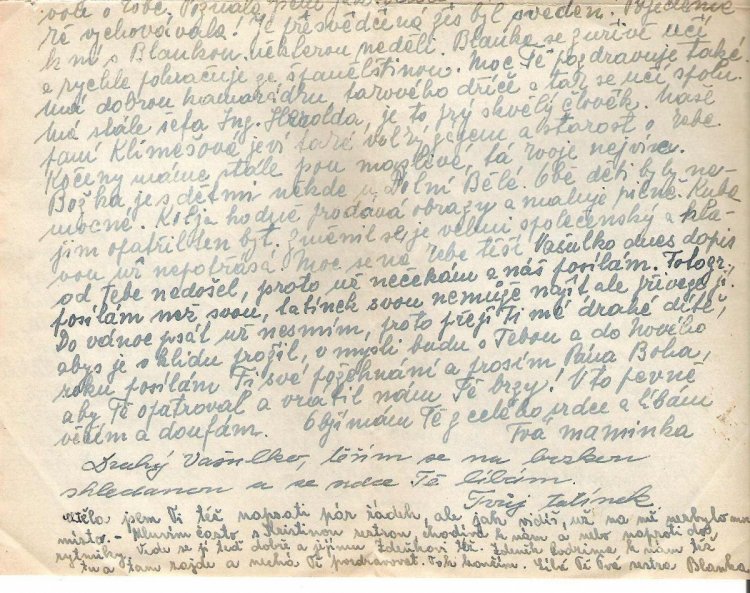 o Tobě. Poznala jsem
ré vychovávala. Je přesvědčená, žes byl sveden. Pojedeme
k ní s Blankou některou neděli. Blanka se zuřivě učí
a rychle pokračuje ze španělštinou. Moc Tě pozdravuje také.
má dobrou kamarádku, a tak se učí spolu.
má stále šéfa Ing. Herolda, je to prý skvělý člověk. Naše
paní Klimešová jeví také velký zájem a starost o Tebe
Kočeny máme stále pou mazlivé, tá tvoje nejvíce.
Božka je s dětmi někde v Dolní Bělé. Obě děti byly ne-
mocné. Kolja hodně prodává obrazy a maluje pilně. Kuba
jim opatřil ten byt. Změnil se, je velmi společenský a hla-
vou už nepotřásá. Moc se na Tebe těší. Vašulko dnes dopis
od Tebe nedošel, proto už nečekám a náš posílám. Fotogr.
posílám než svou, tatínek svou nemůže najít ale přiveze ji.
Do vánoc psát už nesmím, proto přeji Ti mé drahé dítě,
abys je v klidu prožil, v mysli budu s Tebou a do Nového
roku posílám Ti své požehnání a prosím Pána Boha,
aby Tě opatroval a vrátil nám Tě brzy! V to pevně
věřím a doufám. Objímám Tě z celého srdce a líbám
Tvá maminka
Drahý Vašulko, těším se na brzkou
shledanou a ze srdce Tě líbám.
Tvůj tatínek
Chtěla jsem Ti též napsati pár řádek, ale jak vidíš, už na mě nezbylo moc
místa. - Mluvím často s sestrou, chodívá k nám a nebo naproti do
rytmiky. Vede se jí teď dobře a jejímu Zdeňkovi též. Zdeněk k nám též
tu a tam zajde a nechá Tě pozdravovat. Tak končím. Líbá Tě Tvá sestra Blanka